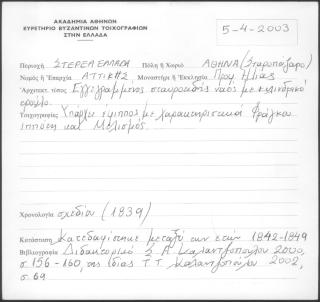 ΑΚΑΔΗΜΙΑ ΑΘΗΝΩΝ
ΕΥΡΕΤΗΡΙΟ ΒΥΖΑΝΤΙΝΩΝ ΤΟΙΧΟΓΡΑΦΙΩΝ
ΣΤΗΝ ΕΛΛΑΔΑ
5-4-2003
Περιοχή ΣΤΕΡΕΑ ΕΛΛΑΔΑ Πόλη ή Χωριό ΑΘΗΝΑ (Σταροπάζαρο)
Νομός ή Ἐπαρχία ΑΤΤΙΚΗΣ Μοναστήρι ή Ἐκκλησία Προφ. Ηλίας
Ἀρχιτεκτ. τύπος Εγγεγραμμένος σταυροειδής ναός με κυλινδρικό
τρούλο.
Τοιχογραφίες Υπάρχει έφιππος με χαρακτηριστικά Φράγκου
ιππότη και Μελισμός.
Χρονολογία σχεδίου (1839)
Κατάσταση Κατεδαφίστηκε μεταξύ των ετών 1842-1849
Βιβλιογραφία Διδακτορικό Σ. Α. Καλαντζοπούλου 2000,
σ 156-160, της ιδίας Τ.Τ. Καλαντζοπούλου 2002,
σ. 69